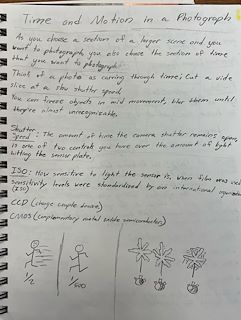 Time and Motion in a Photograph
As you choose a section of a larger scene and you
want to photograph, you also choose the section of time
that you want to photograph.
Think of a photo as carving through time; Cut a wide
slice at a slow shutter speed.
You can freeze objects in mid movement, blur them until
they're almost unrecognisable.
Shutter
Speed : The amount of time the camera shutter remains open,
is one of two controls you have over the amount of light
hitting the sensor plate.
ISO: How sensitive to light the sensor is, when film was used
sensitivity levels were standardised by an international
(ISO)
CCD (charge couple device)
CMOS (complementary metal oxide semiconductor)
1/2
1/500